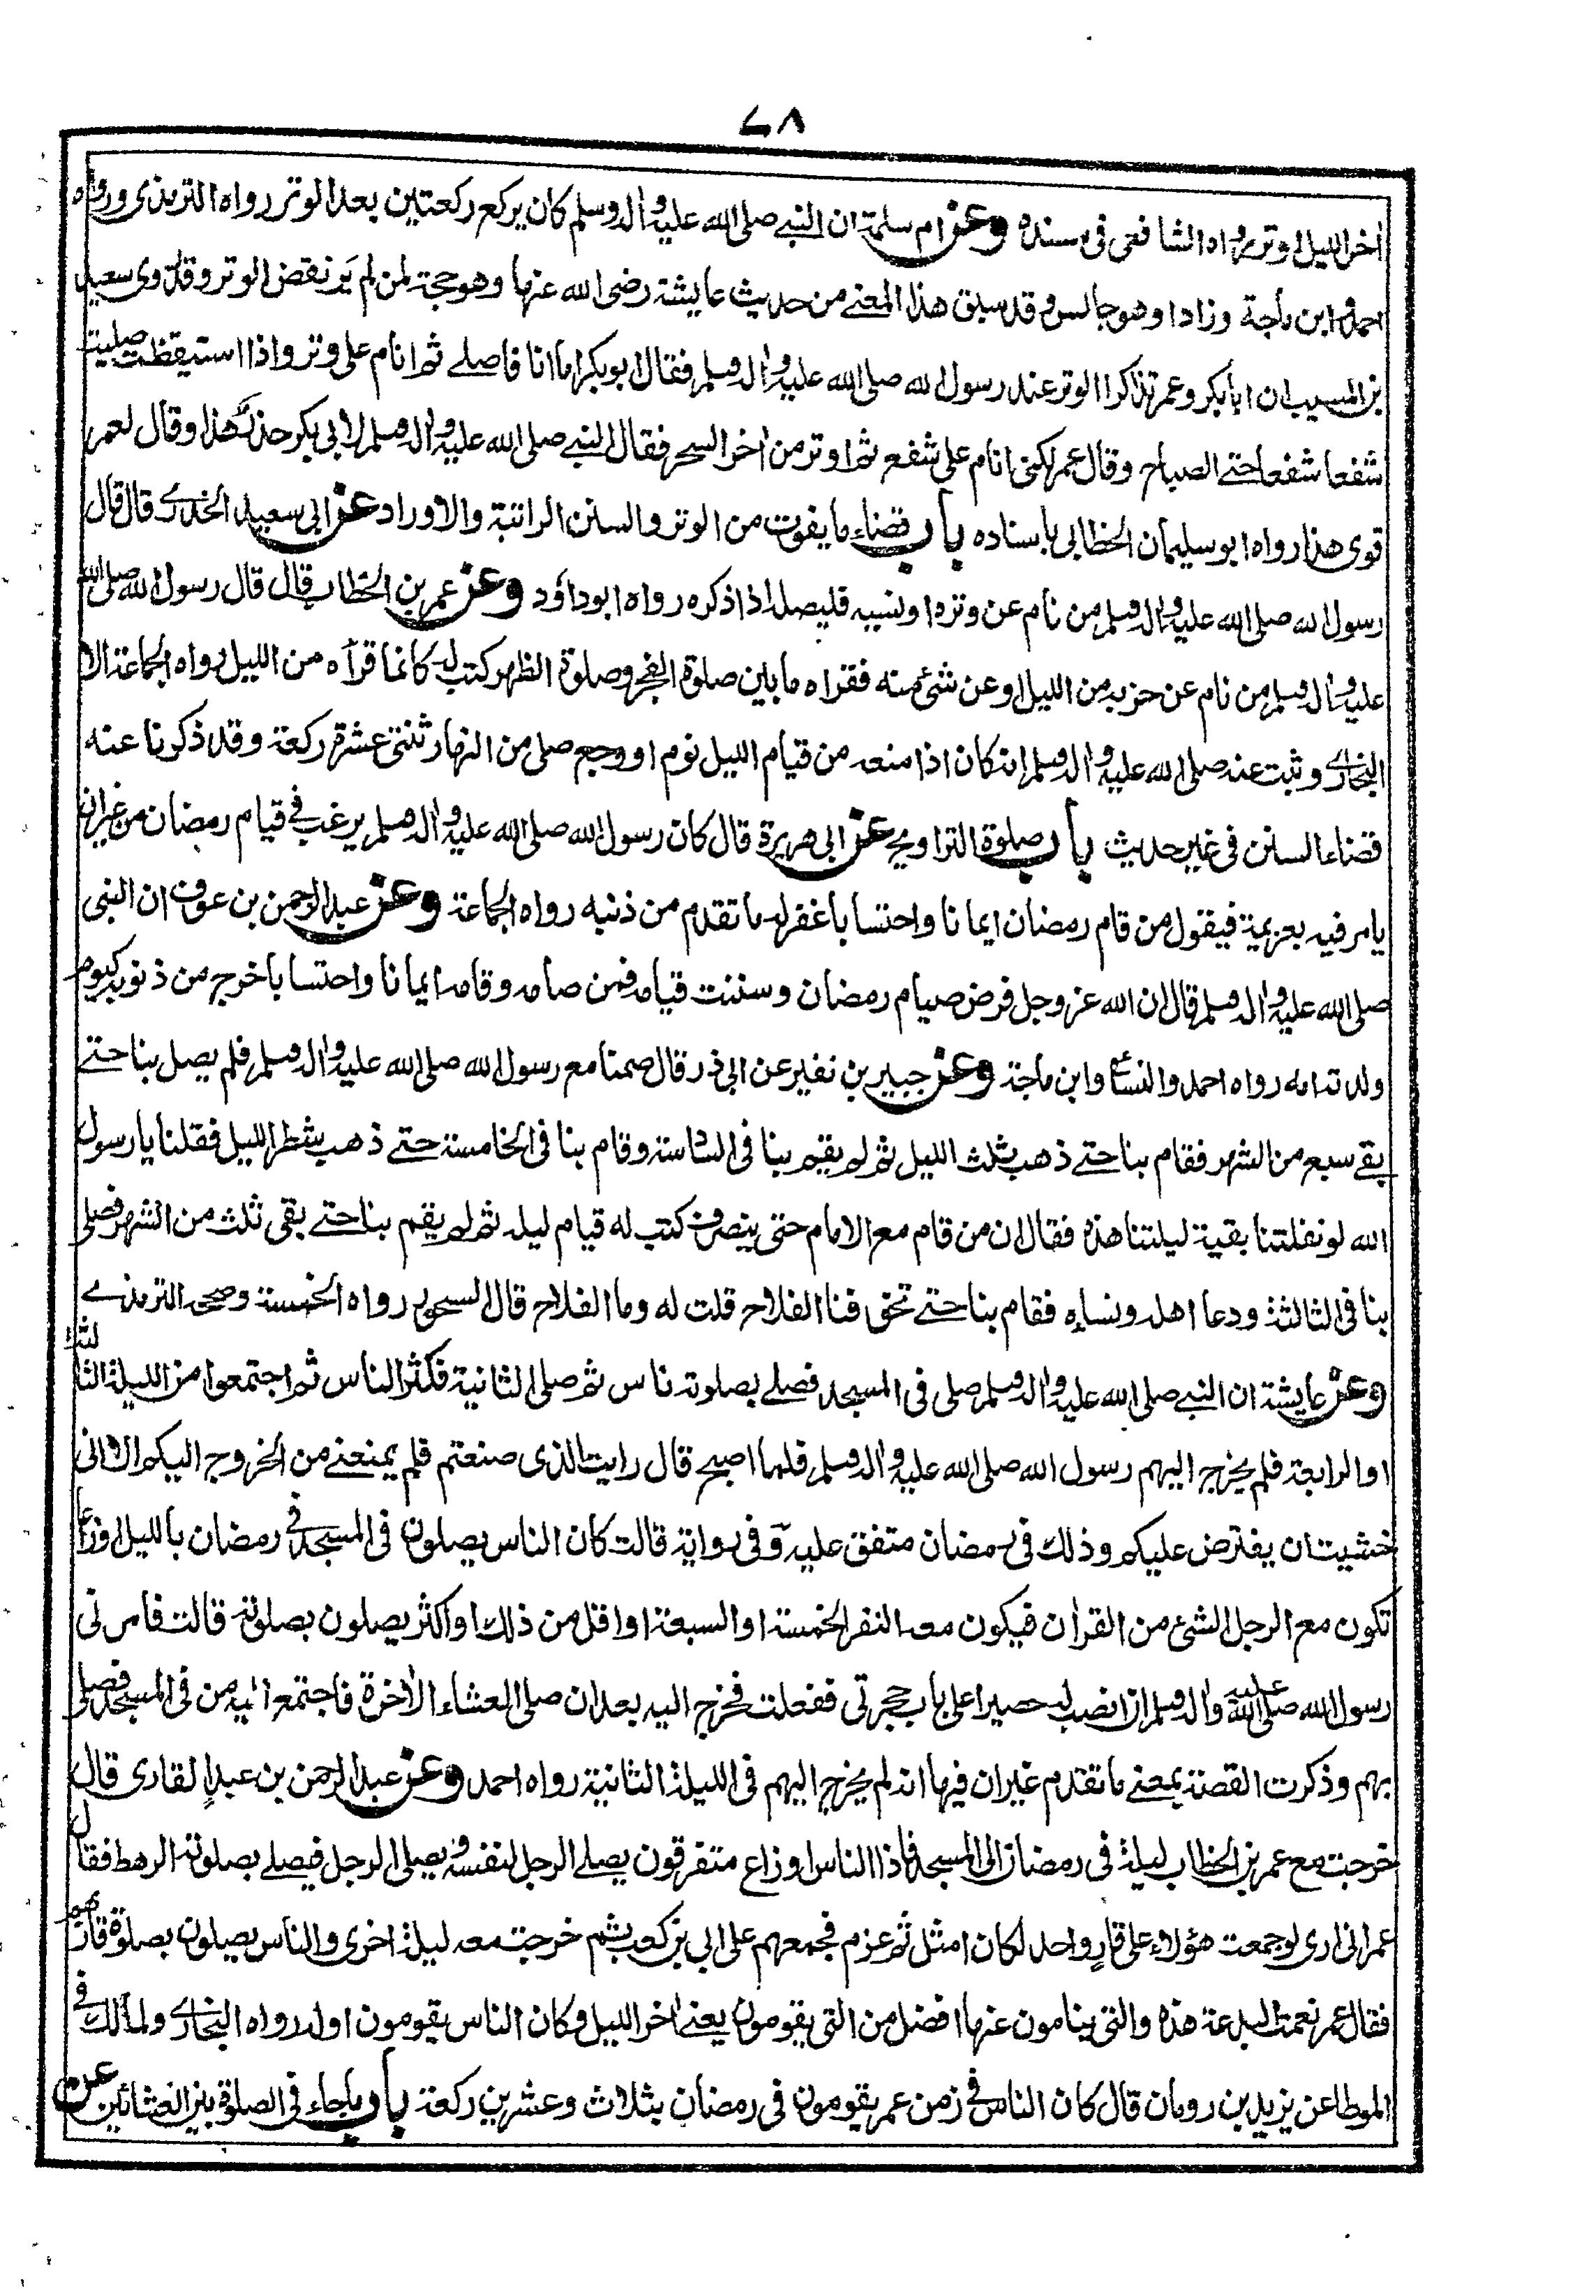 ٧٨
اٰخر الليل اوتر رواه الشافعى فى مسنده وعن ام سلمة ان النبے صلى الله عليه واٰله وسلم كان يركع ركعتين بعد الوتر رواه الترمذى ورواه
احمد وابن ماجة وزادا وهو جالس وقد سبق هذا المعنے من حديث عايشة رضى الله عنها وهو حجة لمن لم يَر نقض الوتر وقد روى سعيد
بن المسيب ان ابا بكر وعمر تذاكرا الوتر عند رسول الله صلى الله عليه واٰله وسلم فقال ابو بكر اما انا فاصلے ثم انام على وتر واذا استيقظت صليت
شفعا شفعا حتے الصباح وقال عمر لكنى انام على شفع ثم اوتر من اٰخر السحر فقال النبے صلى الله عليه واٰله وسلم لابى بكر حذر هذا وقال لعمر
قوى هذا رواه ابو سليمان الخطابى باسناده باب قضاء ما يفوت من الوتر والسنن الراتبة والاوراد عن ابى سعيد الخدرے قال قال
رسول الله صلى الله عليه واٰله وسلم من نام عن وتره او نسيه فليصله اذا ذكره رواه ابو داؤد وعن عمر بن الخطاب قال قال رسول الله صلى الله
عليه واٰله وسلم من نام عن حزبه من الليل او عن شئ منه فقراه ما بين صلوة الفجر وصلوة الظهر كتب له كانما قرأه من الليل رواه الجماعة الا
البخارے وثبت عنه صلى الله عليه واٰله وسلم انه كان اذا منعه من قيام الليل نوم او وجع صلى من النهار ثنتى عشرة ركعة وقد ذكرنا عنه
قضاء السنن فى غير حديث باب صلوة التراويح عن ابى هريرة قال كان رسول الله صلى الله عليه واٰله وسلم يرغب فى قيام رمضان من غير ان
يامر فيه بعزيمة فيقول من قام رمضان ايمانا واحتسابا غفر له ما تقدم من ذنبه رواه الجماعة وعن عبد الرحمن بن عوف ان النبى
صلى الله عليه واٰله وسلم قال ان الله عز وجل فرض صيام رمضان وسننت قيامه فمن صامه وقامه ايمانا واحتسابا خرج من ذنوبه كيوم
ولدته امه رواه احمد والنسائى وابن ماجة وعن جبير بن نفير عن ابى ذر قال صمنا مع رسول الله صلى الله عليه واٰله وسلم فلم يصل بنا حتے
بقے سبع من الشهر فقام بنا حتے ذهب ثلث الليل ثم لم يقم بنا فى السادسة وقام بنا فى الخامسة حتے ذهب شطر الليل فقلنا يا رسول
الله لو نفلتنا بقية ليلتنا هذه فقال ان من قام مع الامام حتى ينصرف كتب له قيام ليلة ثم لم يقم بنا حتے بقى ثلث من الشهر فصلى
بنا فى الثالثة ودعا اهله ونساءه فقام بنا حتے تخوفنا الفلاح قلت له وما الفلاح قال السحور رواه الخمسة وصححه الترمذے
وعن عايشة ان النبے صلى الله عليه واٰله وسلم صلى فى المسجد فصلے بصلوته ناس ثم صلى الثانية فكثر الناس ثم اجتمعوا من الليلة الثالثة
او الرابعة فلم يخرج اليهم رسول الله صلى الله عليه واٰله وسلم فلما اصبح قال رايت الذى صنعتم فلم يمنعنے من الخروج اليكم الا انى
خشيت ان يفترض عليكم وذلك فى رمضان متفق عليه وفى رواية قالت كان الناس يصلون فى المسجد فى رمضان بالليل اوزاعا
تكون مع الرجل الشئ من القراٰن فيكون معه النفر الخمسة او السبعة او اقل من ذلك او اكثر يصلون بصلوته قالت فامرنى
رسول الله صلى الله عليه واٰله وسلم ان انصب له حصيرا على باب حجرتى ففعلت فخرج اليه بعد ان صلى العشاء الاٰخرة فاجتمع اليه من فى المسجد فصلى
بهم وذكرت القصة بمعنے ما تقدم غير ان فيها انه لم يخرج اليهم فى الليلة الثانية رواه احمد وعن عبد الرحمن بن عبدٍ القارى قال
خرجت مع عمر بن الخطاب ليلة فى رمضان الى المسجد فاذا الناس اوزاع متفرقون يصلے الرجل لنفسه ويصلى الرجل فيصلے بصلوته الرهط فقال
عمر انى ارى لو جمعت هؤلاء على قارٍ واحد لكان امثل ثم عزم فجمعهم على ابى بن كعب ثم خرجت معه ليلة اخرى والناس يصلون بصلوة قارئهم
فقال عمر نعمت البدعة هذه والتى ينامون عنها افضل من التى يقومون يعنے اٰخر الليل وكان الناس يقومون اوله رواه البخارے ولمالك فى
الموطا عن يزيد بن رومان قال كان الناس فى زمن عمر يقومون فى رمضان بثلاث وعشرين ركعة باب ما جاء فى الصلوة بين العشائين عن